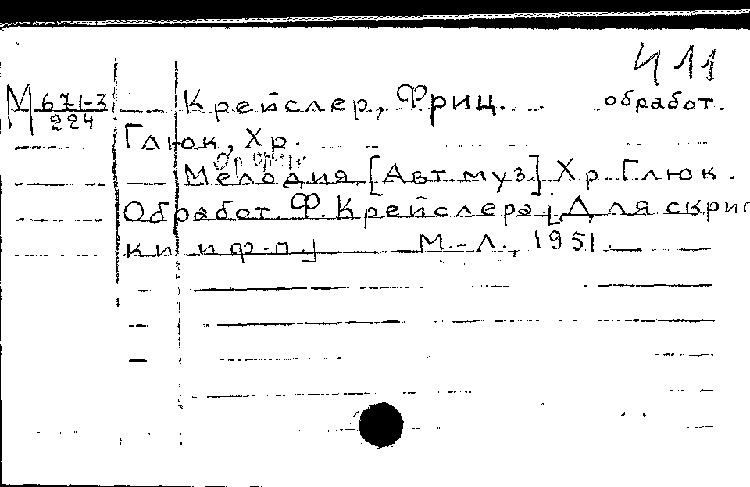 411
М 671-3/224 Крейслер, Фриц. обработ.
Глюк, Хр.
Мелодия [Авт. муз] Хр. Глюк.
Обработ. Ф. Крейслера [Для скрип
ки и ф-п.] М.-Л., 1951.